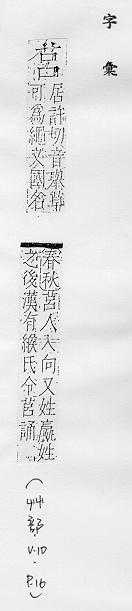 字彙
莒
居許切音舉草
可為繩又國名
春秋莒人入向又姓嬴姓
之後漢有緱氏令莒誦
(艸部,V.10,P.16)